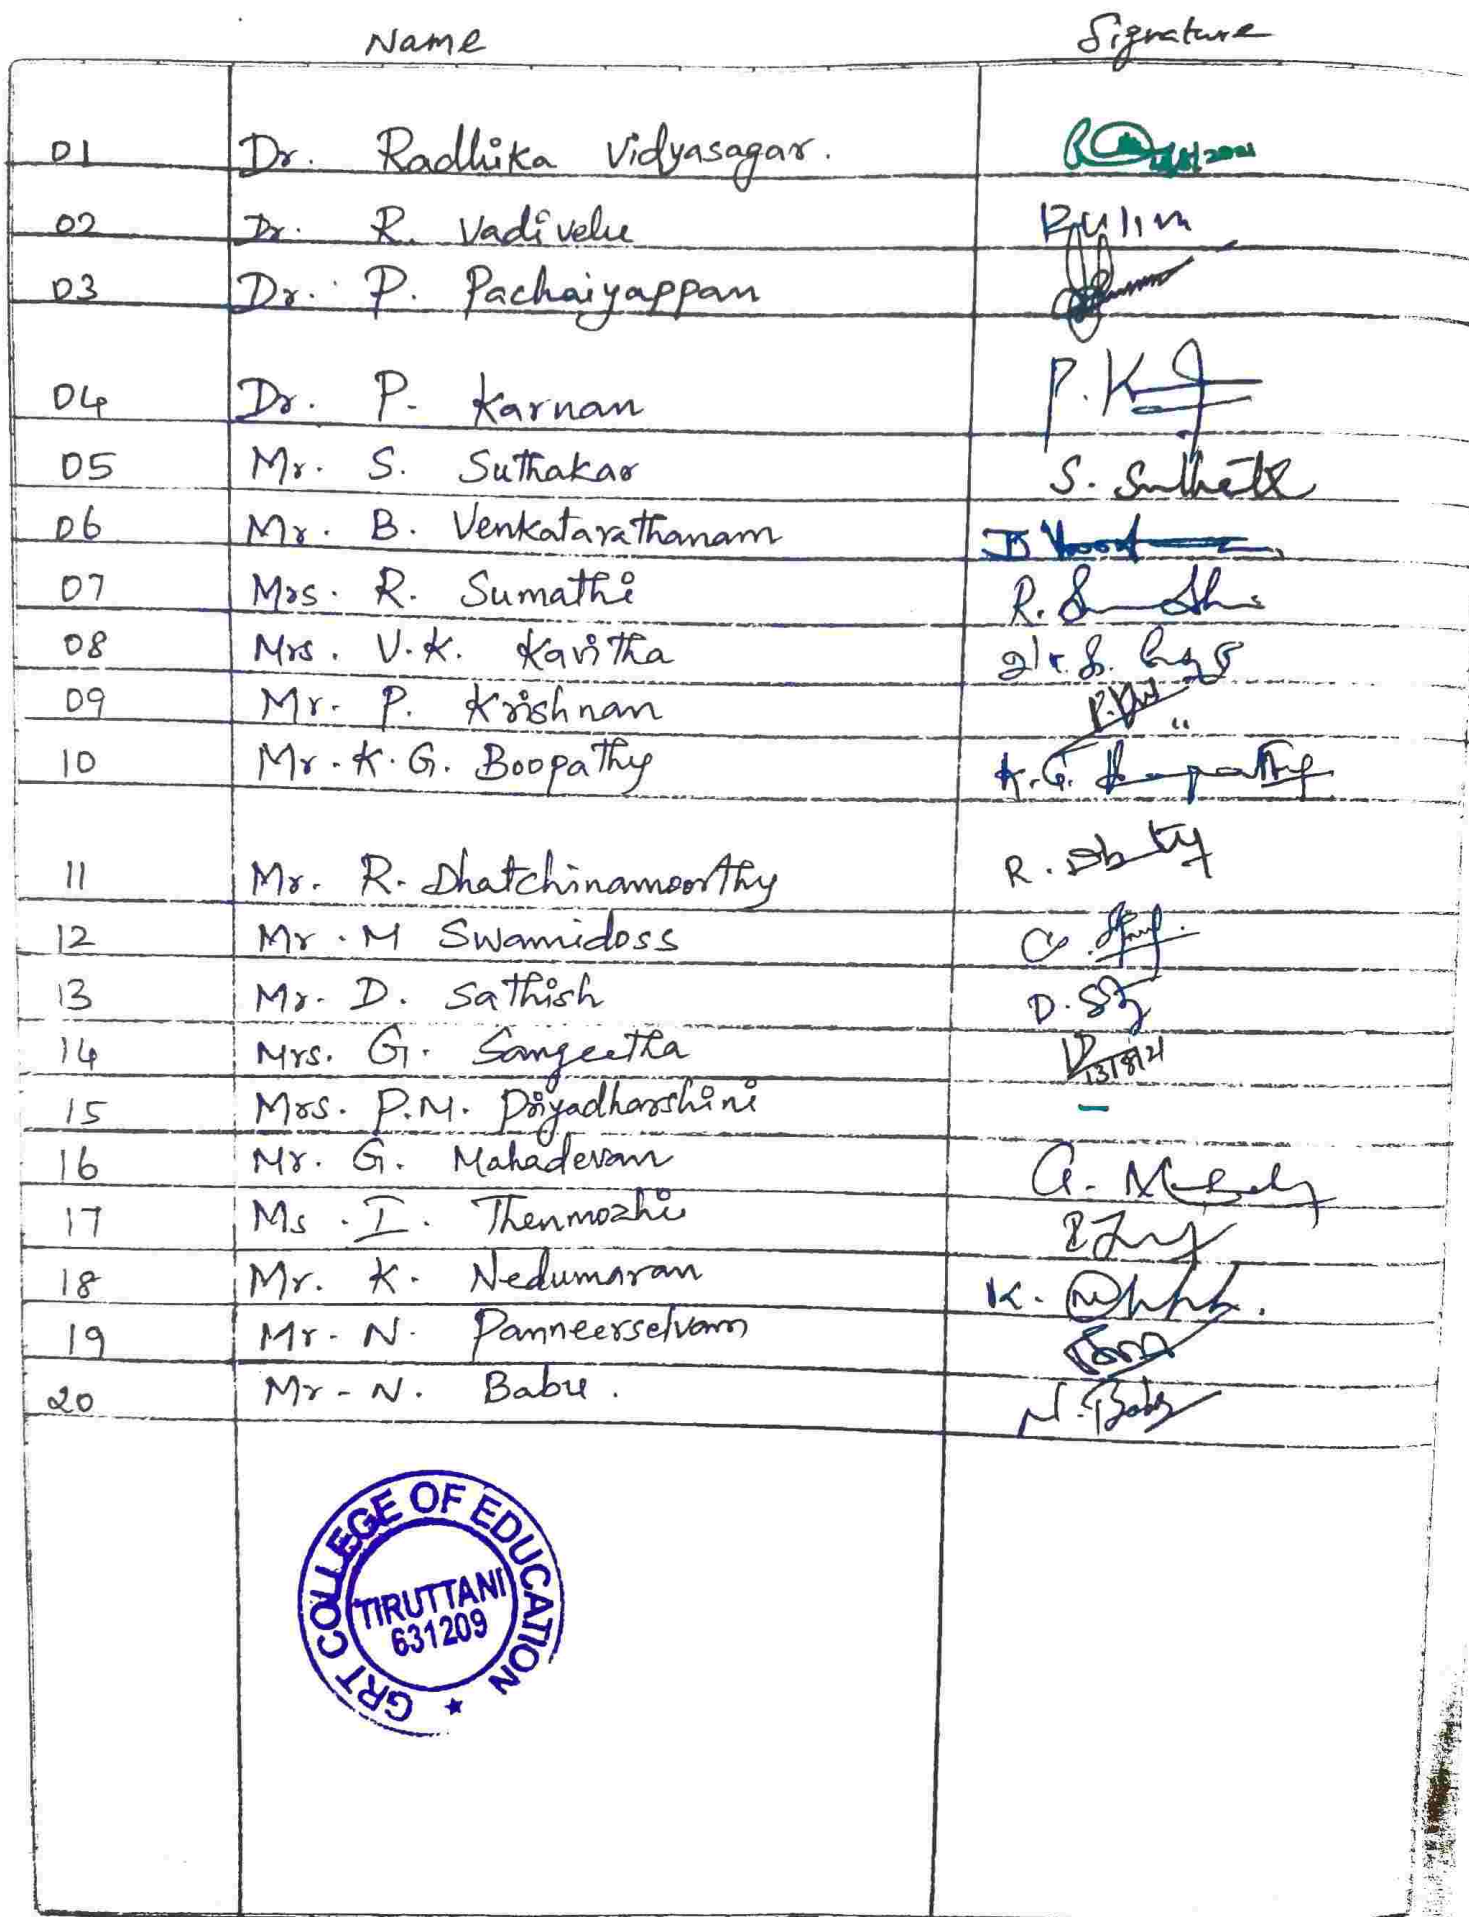 Name Signature
01 Dr. Radhika Vidyasagar.
02 Dr. R. Vadivelu
03 Dr. P. Pachaiyappan
04 Dr. P. Karnan P. K
05 Mr. S. Suthakar S.
06 Mr. B. Venkatarathanam
07 Mrs. R. Sumathi R.
08 Mrs. V.K. Kavitha
09 Mr. P. Krishnan
10 Mr. K. G. Boopathy K. G. Boopathy
11 Mr. R. Dhatchinamoorthy R.
12 Mr. M Swamidoss
13 Mr. D. Sathish D.
14 Mrs. G. Sangeetha 13/8/21
15 Mrs. P.M. Priyadharshini -
16 Mr. G. Mahadevan G.
17 Ms. I. Thenmozhi
18 Mr. K. Nedumaran K.
19 Mr. N. Panneerselvam
20 Mr. N. Babu. N. Babu
GRT COLLEGE OF EDUCATION ★
TIRUTTANI
631209